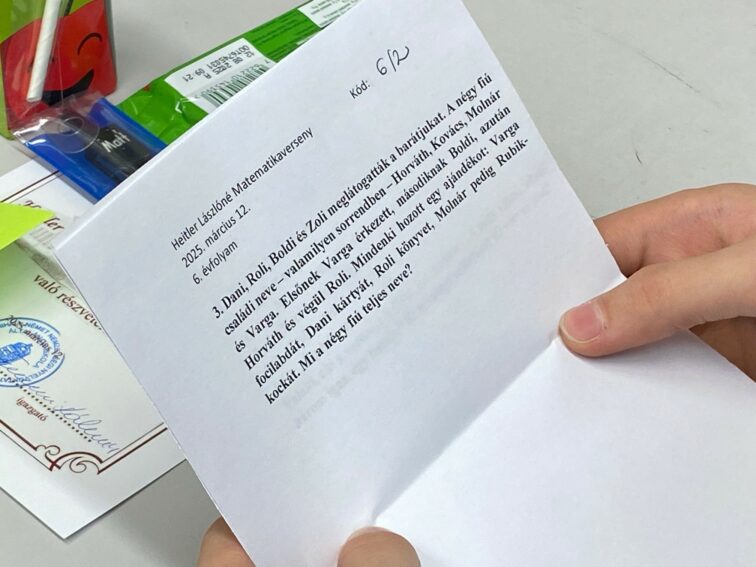 Kód: 6/2
Heitler Lászlóné Matematikaverseny
2025. március 12.
6. évfolyam
3. Dani, Roli, Boldi és Zoli meglátogatták a barátjukat. A négy fiú
családi neve – valamilyen sorrendben – Horváth, Kovács, Molnár
és Varga. Elsőnek Varga érkezett, másodiknak Boldi, azután
Horváth és végül Roli. Mindenki hozott egy ajándékot: Varga
focilabdát, Dani kártyát, Roli könyvet, Molnár pedig Rubik-
kockát. Mi a négy fiú teljes neve?
12 08 2025 A
0076745031 09:21
Matt
való részvéte
igazgató